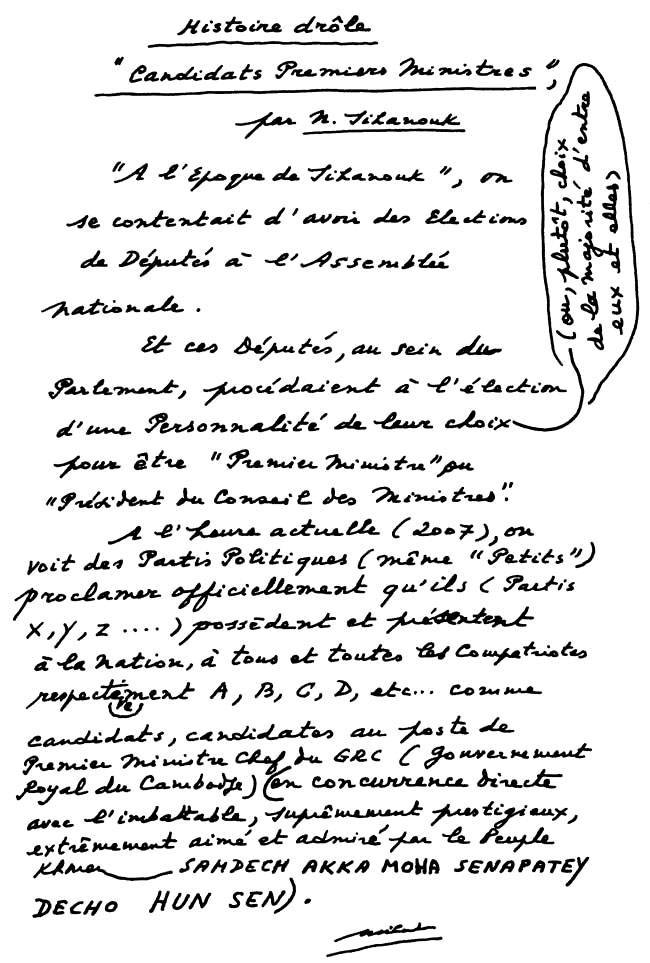 Histoire drôle
"Candidats Premiers Ministres",
par N. Sihanouk
"A l'Epoque de Sihanouk", on
se contentait d'avoir des Elections
de Députés à l'Assemblée
nationale.
Et ces Députés, au sein du
Parlement, procédaient à l'élection
d'une Personnalité de leur choix
(ou, plutôt, choix
de la majorité d'entre
eux et elles)
pour être "Premier Ministre" ou
"Président du Conseil des Ministres".
A l'heure actuelle (2007), on
voit des Partis Politiques (même "Petits")
proclamer officiellement qu'ils (Partis
X, Y, Z ....) possèdent et présentent
à la nation, à tous et toutes les Compatriotes
respectivement A, B, C, D, etc... comme
candidats, candidates au poste de
Premier Ministre Chef du GRC (Gouvernement
Royal du Cambodge) (en concurrence directe
avec l'imbattable, suprêmement prestigieux,
extrêmement aimé et admiré par le Peuple
Khmer SAMDECH AKKA MOHA SENAPATEY
DECHO HUN SEN).